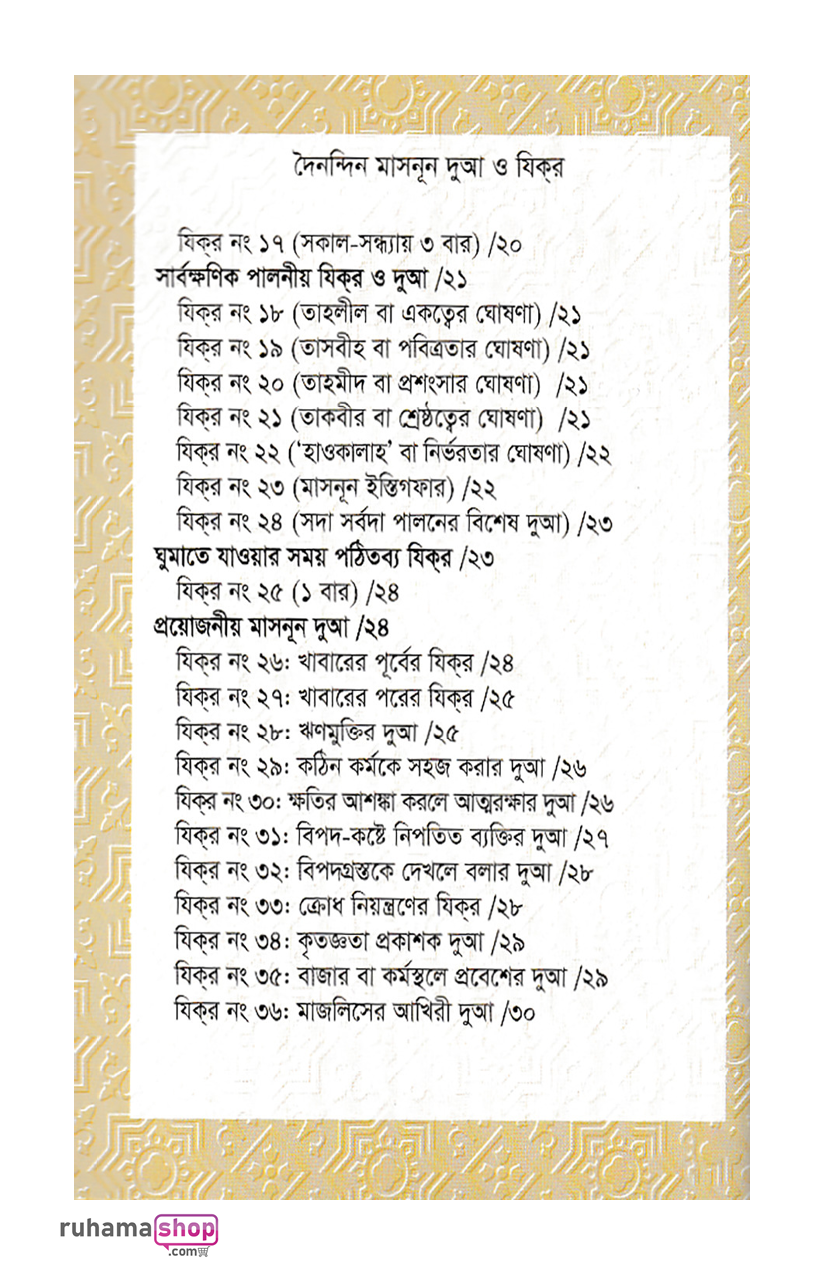 দৈনন্দিন মাসনূন দুআ ও যিক্‌র
যিক্‌র নং ১৭ (সকাল-সন্ধ্যায় ৩ বার) /২০
সার্বক্ষণিক পালনীয় যিক্‌র ও দুআ /২১
যিক্‌র নং ১৮ (তাহলীল বা একত্বের ঘোষণা) /২১
যিক্‌র নং ১৯ (তাসবীহ বা পবিত্রতার ঘোষণা) /২১
যিক্‌র নং ২০ (তাহমীদ বা প্রশংসার ঘোষণা) /২১
যিক্‌র নং ২১ (তাকবীর বা শ্রেষ্ঠত্বের ঘোষণা) /২১
যিক্‌র নং ২২ (‘হাওকালাহ’ বা নির্ভরতার ঘোষণা) /২২
যিক্‌র নং ২৩ (মাসনূন ইস্তিগফার) /২২
যিক্‌র নং ২৪ (সদা সর্বদা পালনের বিশেষ দুআ) /২৩
ঘুমাতে যাওয়ার সময় পঠিতব্য যিক্‌র /২৩
যিক্‌র নং ২৫ (১ বার) /২৪
প্রয়োজনীয় মাসনূন দুআ /২৪
যিক্‌র নং ২৬: খাবারের পূর্বের যিক্‌র /২৪
যিক্‌র নং ২৭: খাবারের পরের যিক্‌র /২৫
যিক্‌র নং ২৮: ঋণমুক্তির দুআ /২৫
যিক্‌র নং ২৯: কঠিন কর্মকে সহজ করার দুআ /২৬
যিক্‌র নং ৩০: ক্ষতির আশঙ্কা করলে আত্মরক্ষার দুআ /২৬
যিক্‌র নং ৩১: বিপদ-কষ্টে নিপতিত ব্যক্তির দুআ /২৭
যিক্‌র নং ৩২: বিপদগ্রস্তকে দেখলে বলার দুআ /২৮
যিক্‌র নং ৩৩: ক্রোধ নিয়ন্ত্রণের যিক্‌র /২৮
যিক্‌র নং ৩৪: কৃতজ্ঞতা প্রকাশক দুআ /২৯
যিক্‌র নং ৩৫: বাজার বা কর্মস্থলে প্রবেশের দুআ /২৯
যিক্‌র নং ৩৬: মাজলিসের আখিরী দুআ /৩০
ruhamashop
.com